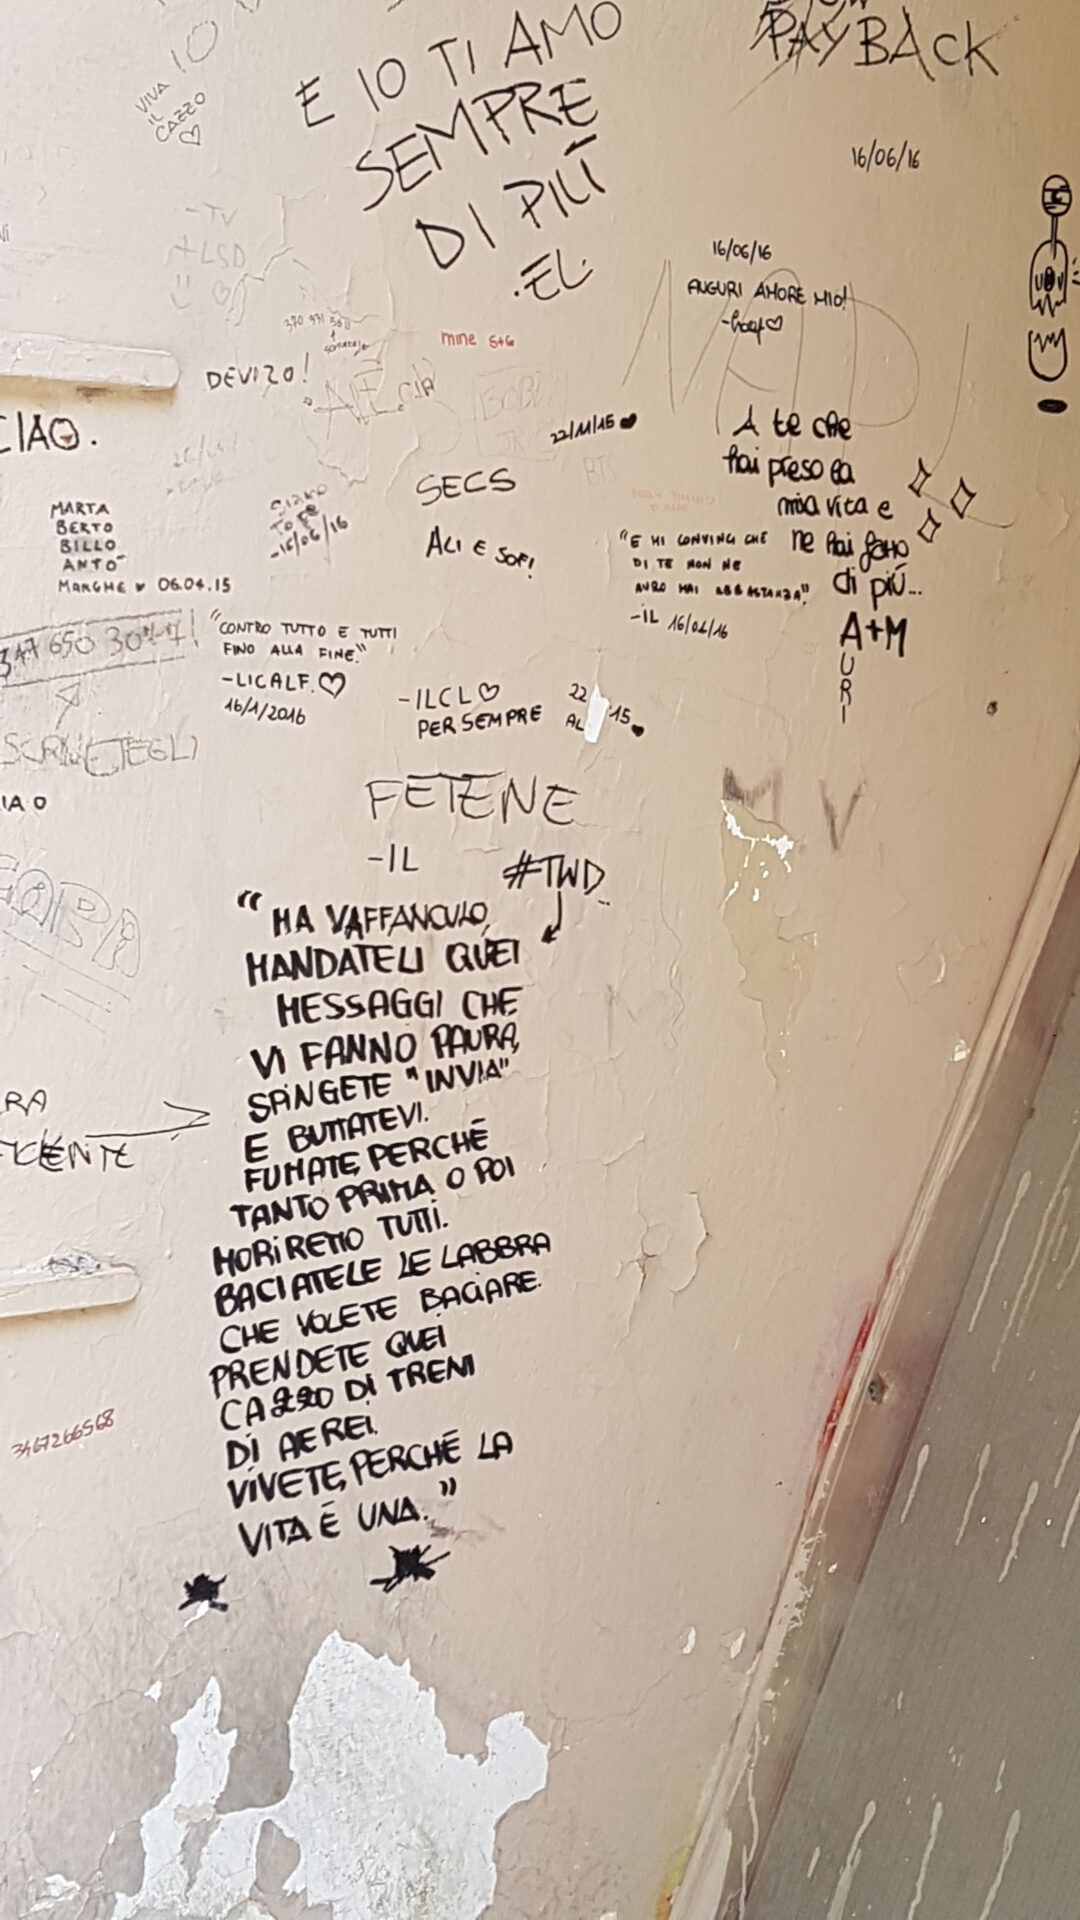 IO
VIVA
IL
CAZZO
E IO TI AMO
SEMPRE
DI PIÙ
.EL.
PAYBACK
16/06/16
-TV
+LSD
16/06/16
AUGURI AMORE MIO!
mine S+G
DEVIZO!
CIAO.
22/11/15
BTS
A te che
hai preso la
mia vita e
ne hai fatto
di più...
A+M
U
R
I
SECS
ALI E SOFI
MARTA
BERTO
BILLO
ANTO
MARGHE 06.04.15
-16/06/16
"E MI CONVINCI CHE
DI TE NON NE
AVRO MAI ABBASTANZA"
-IL 16/06/16
347 650
"CONTRO TUTTO E TUTTI
FINO ALLA FINE."
-LICALF.
16/1/2016
-ILCL
PER SEMPRE
22
AL 15
FETENE
-IL
#TWD
M V
"HA VAFFANCULO,
MANDATELI QUEI
MESSAGGI CHE
VI FANNO PAURA,
SPINGETE "INVIA"
E BUTTATEVI.
FUMATE, PERCHÉ
TANTO PRIMA O POI
MORIREMO TUTTI.
BACIATELE LE LABBRA
CHE VOLETE BACIARE.
PRENDETE QUEI
CAZZO DI TRENI
DI AEREI.
VIVETE, PERCHÉ LA
VITA É UNA."
3467266568